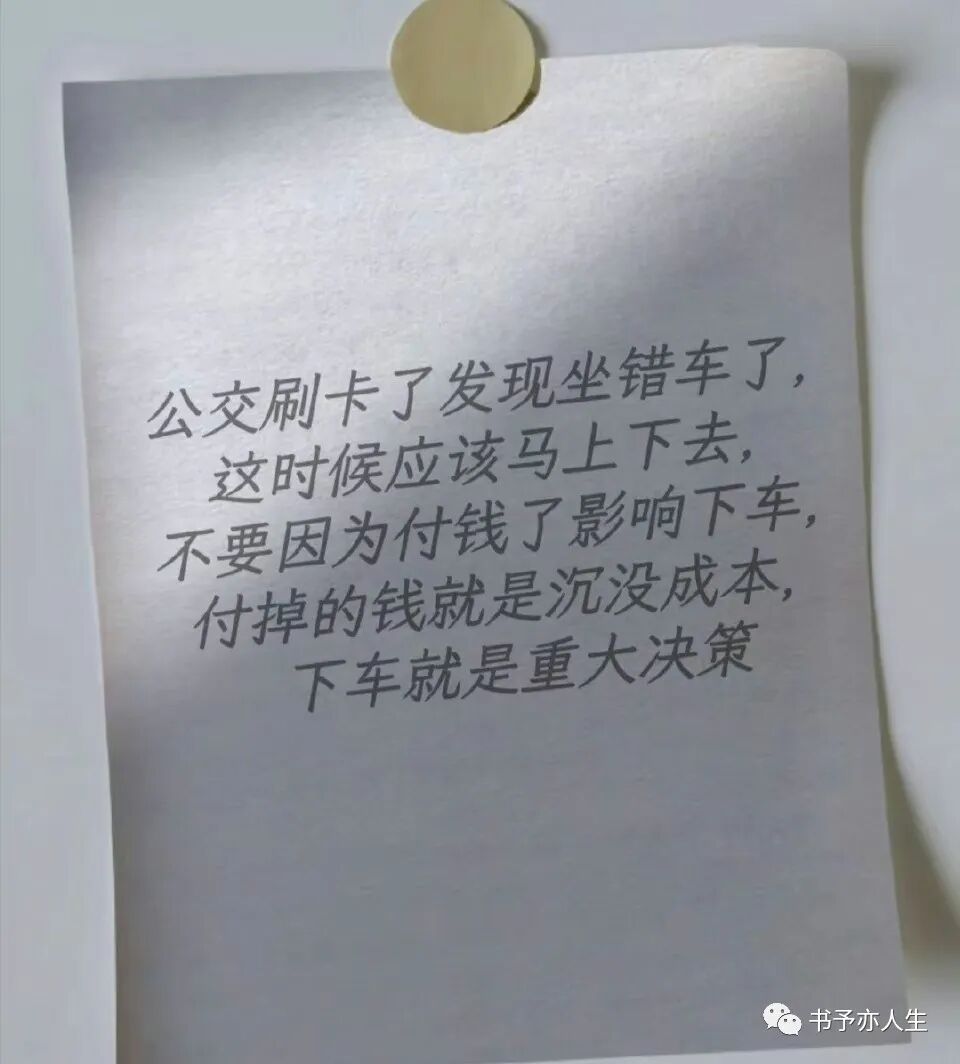 公交刷卡了发现坐错车了，
这时候应该马上下去，
不要因为付钱了影响下车，
付掉的钱就是沉没成本，
下车就是重大决策
书予亦人生